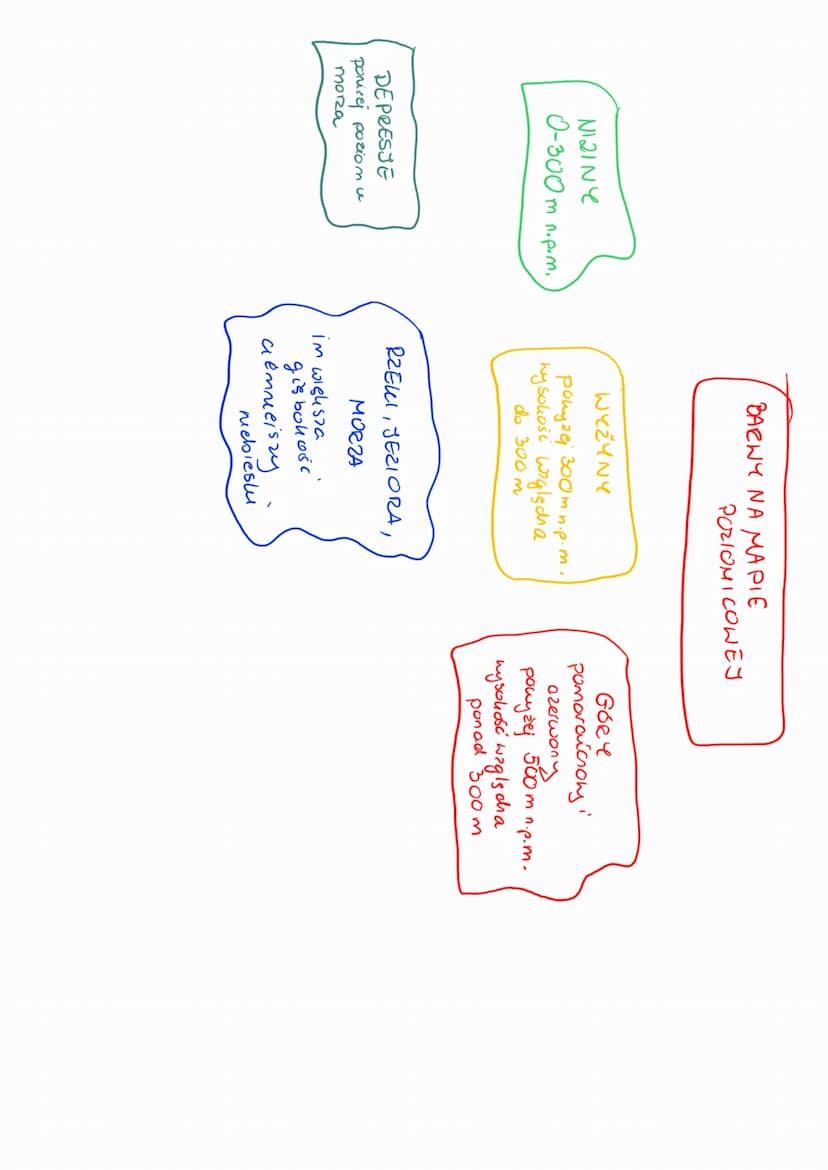 BARWY NA MAPIE
POZIOMICOWEJ
NIZINY
0-300 m n.p.m.
WYŻYNY
powyżej 300 m n.p.m.
wysokość względna
do 300 m
GÓRY
pomarańczowy i
czerwony
powyżej 500 m n.p.m.
wysokość względna
ponad 300 m
DEPRESJE
poniżej poziomu
morza
RZEKI, JEZIORA,
MORZA
im większa
głębokość
ciemniejszy
niebieski